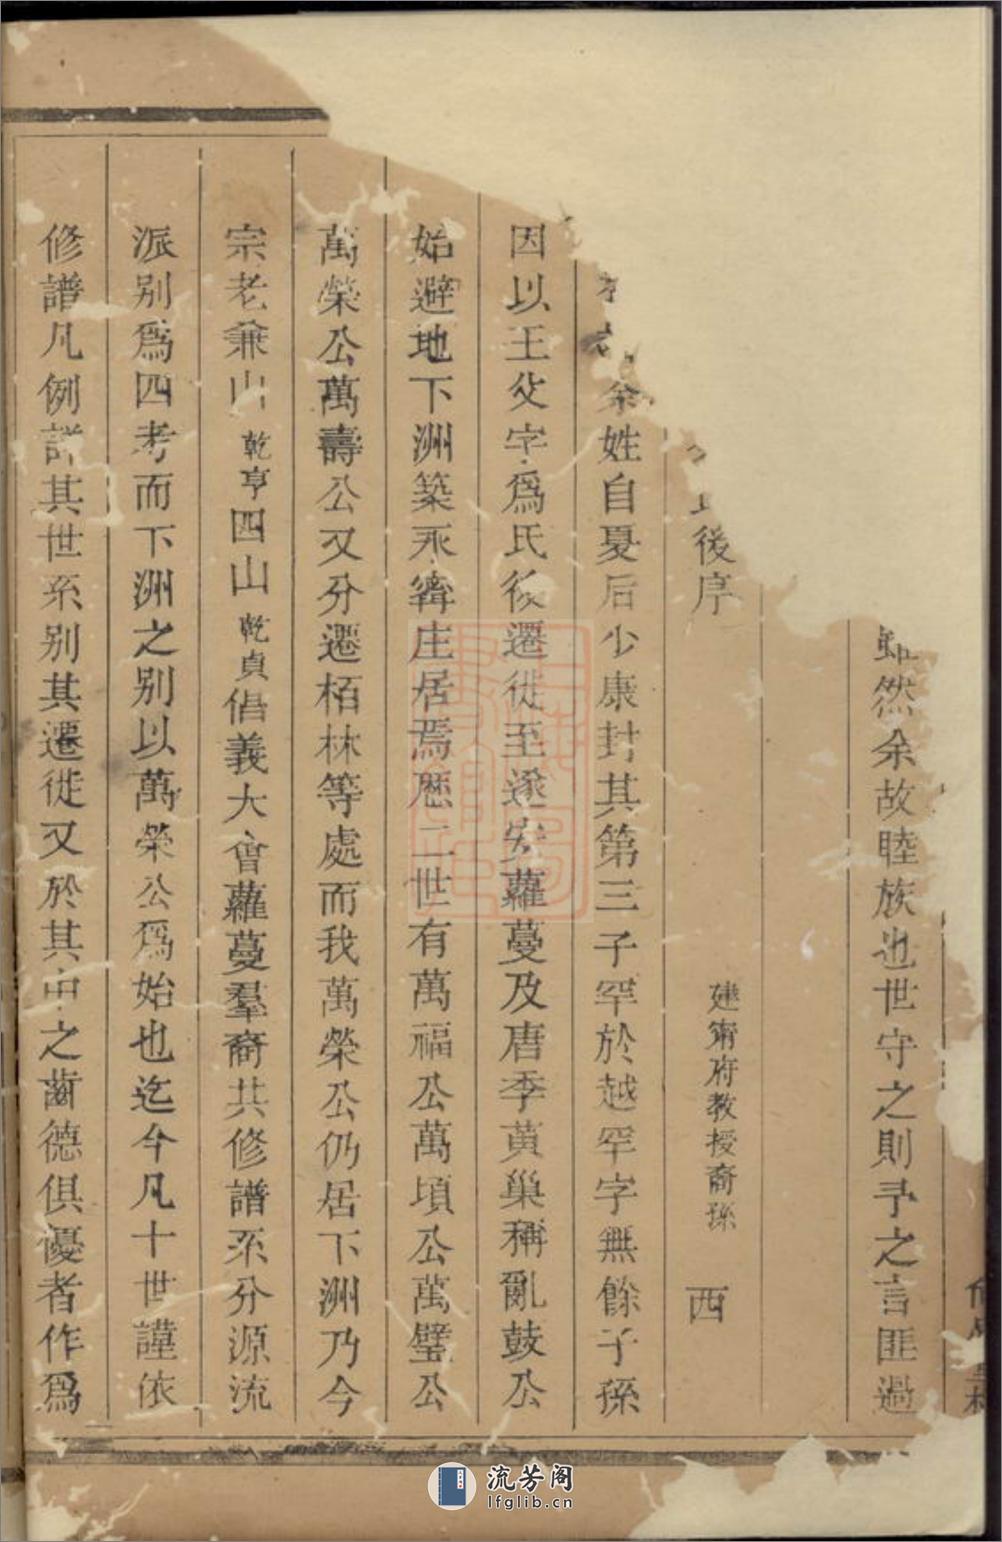 雖然余故睦族也世守之則予之言匪過
氏後序
建甯府教授裔孫 西
余姓自夏后少康封其第三子罕於越罕字無餘子孫
因以王父字爲氏後遷徙至遂安蘿蔓及唐季黃巢稱亂鼓公
始避地下洲築永薜庄居焉歷二世有萬福公萬頃公萬璧公
萬榮公萬壽公又分遷栢林等處而我萬榮公仍居下洲乃今
宗老兼山乾亨四山乾貞倡義大會蘿蔓羣裔共修譜系分源流
派别爲四考而下洲之别以萬榮公爲始也迄今凡十世謹依
修譜凡例詳其世系别其遷徙又於其中之齒德俱優者作爲
流芳阁
lfglib.cn